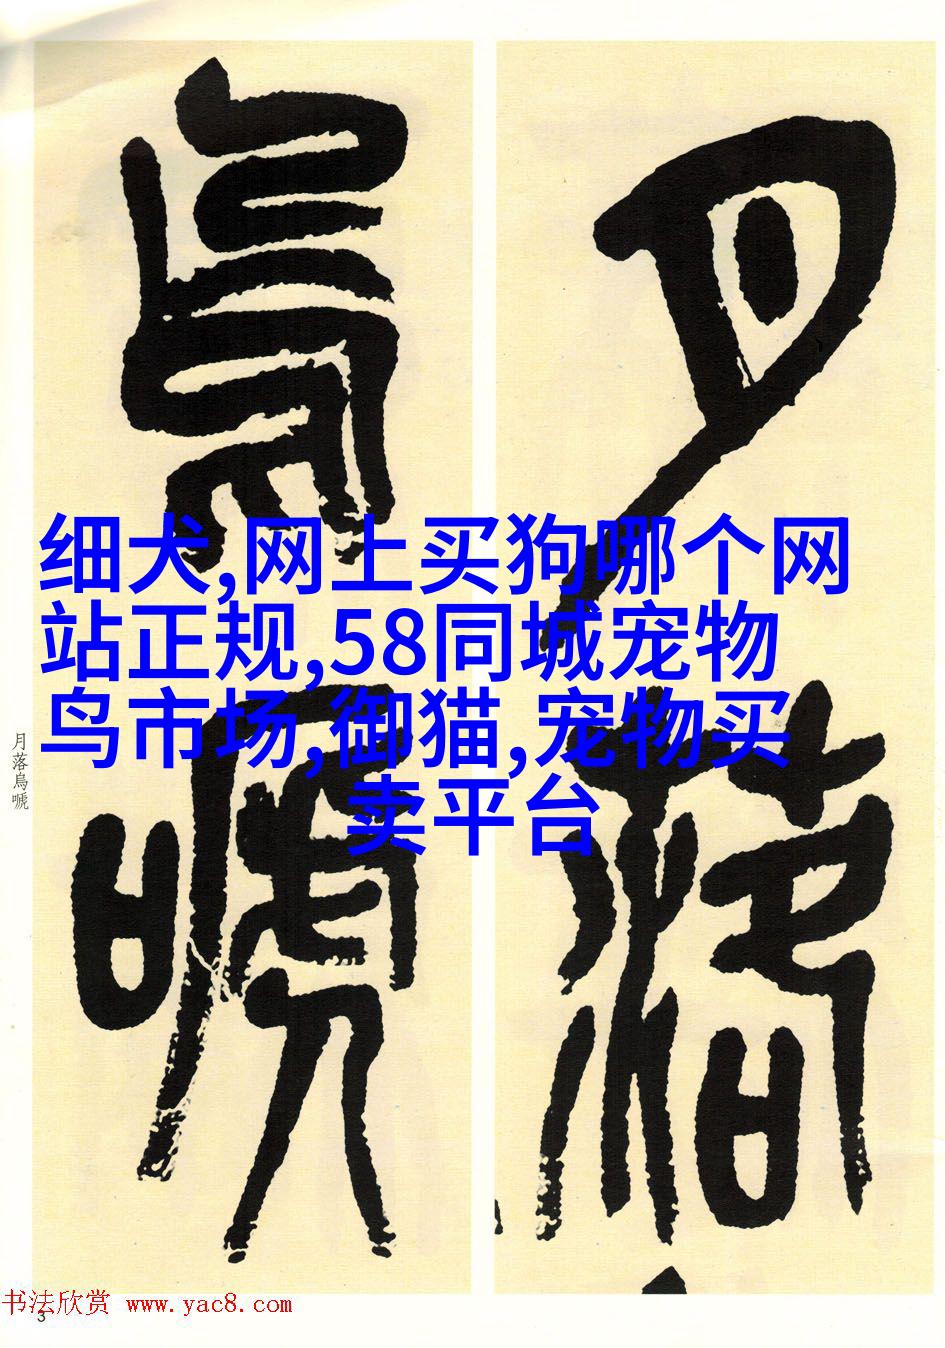 月落
烏嗁
细犬,网上买狗哪个网
站正规,58同城宠物
鸟市场,御猫,宠物买
卖平台
月落烏嗁
书法欣赏 www.yac8.com
3